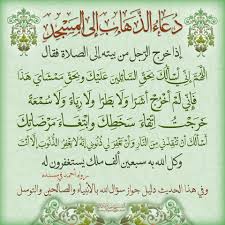 دعاء الذهاب إلى المسجد
إذا خرج الرجل من بيته إلى الصلاة فقال
اللهم إني أسألك بحق السائلين عليك وبحق ممشاي هذا
فإني لم أخرج أشرا ولا بطرا ولا رياء ولا سمعة
خرجت اتقاء سخطك وابتغاء مرضاتك
أسألك أن تنقذني من النار وأن تغفر لي ذنوبي إنه لا يغفر الذنوب إلا أنت
وكل الله به سبعين ألف ملك يستغفرون له
رواه أحمد في مسنده
وفي هذا الحديث دليل جواز سؤال الله بالأنبياء والصالحين والتوسل